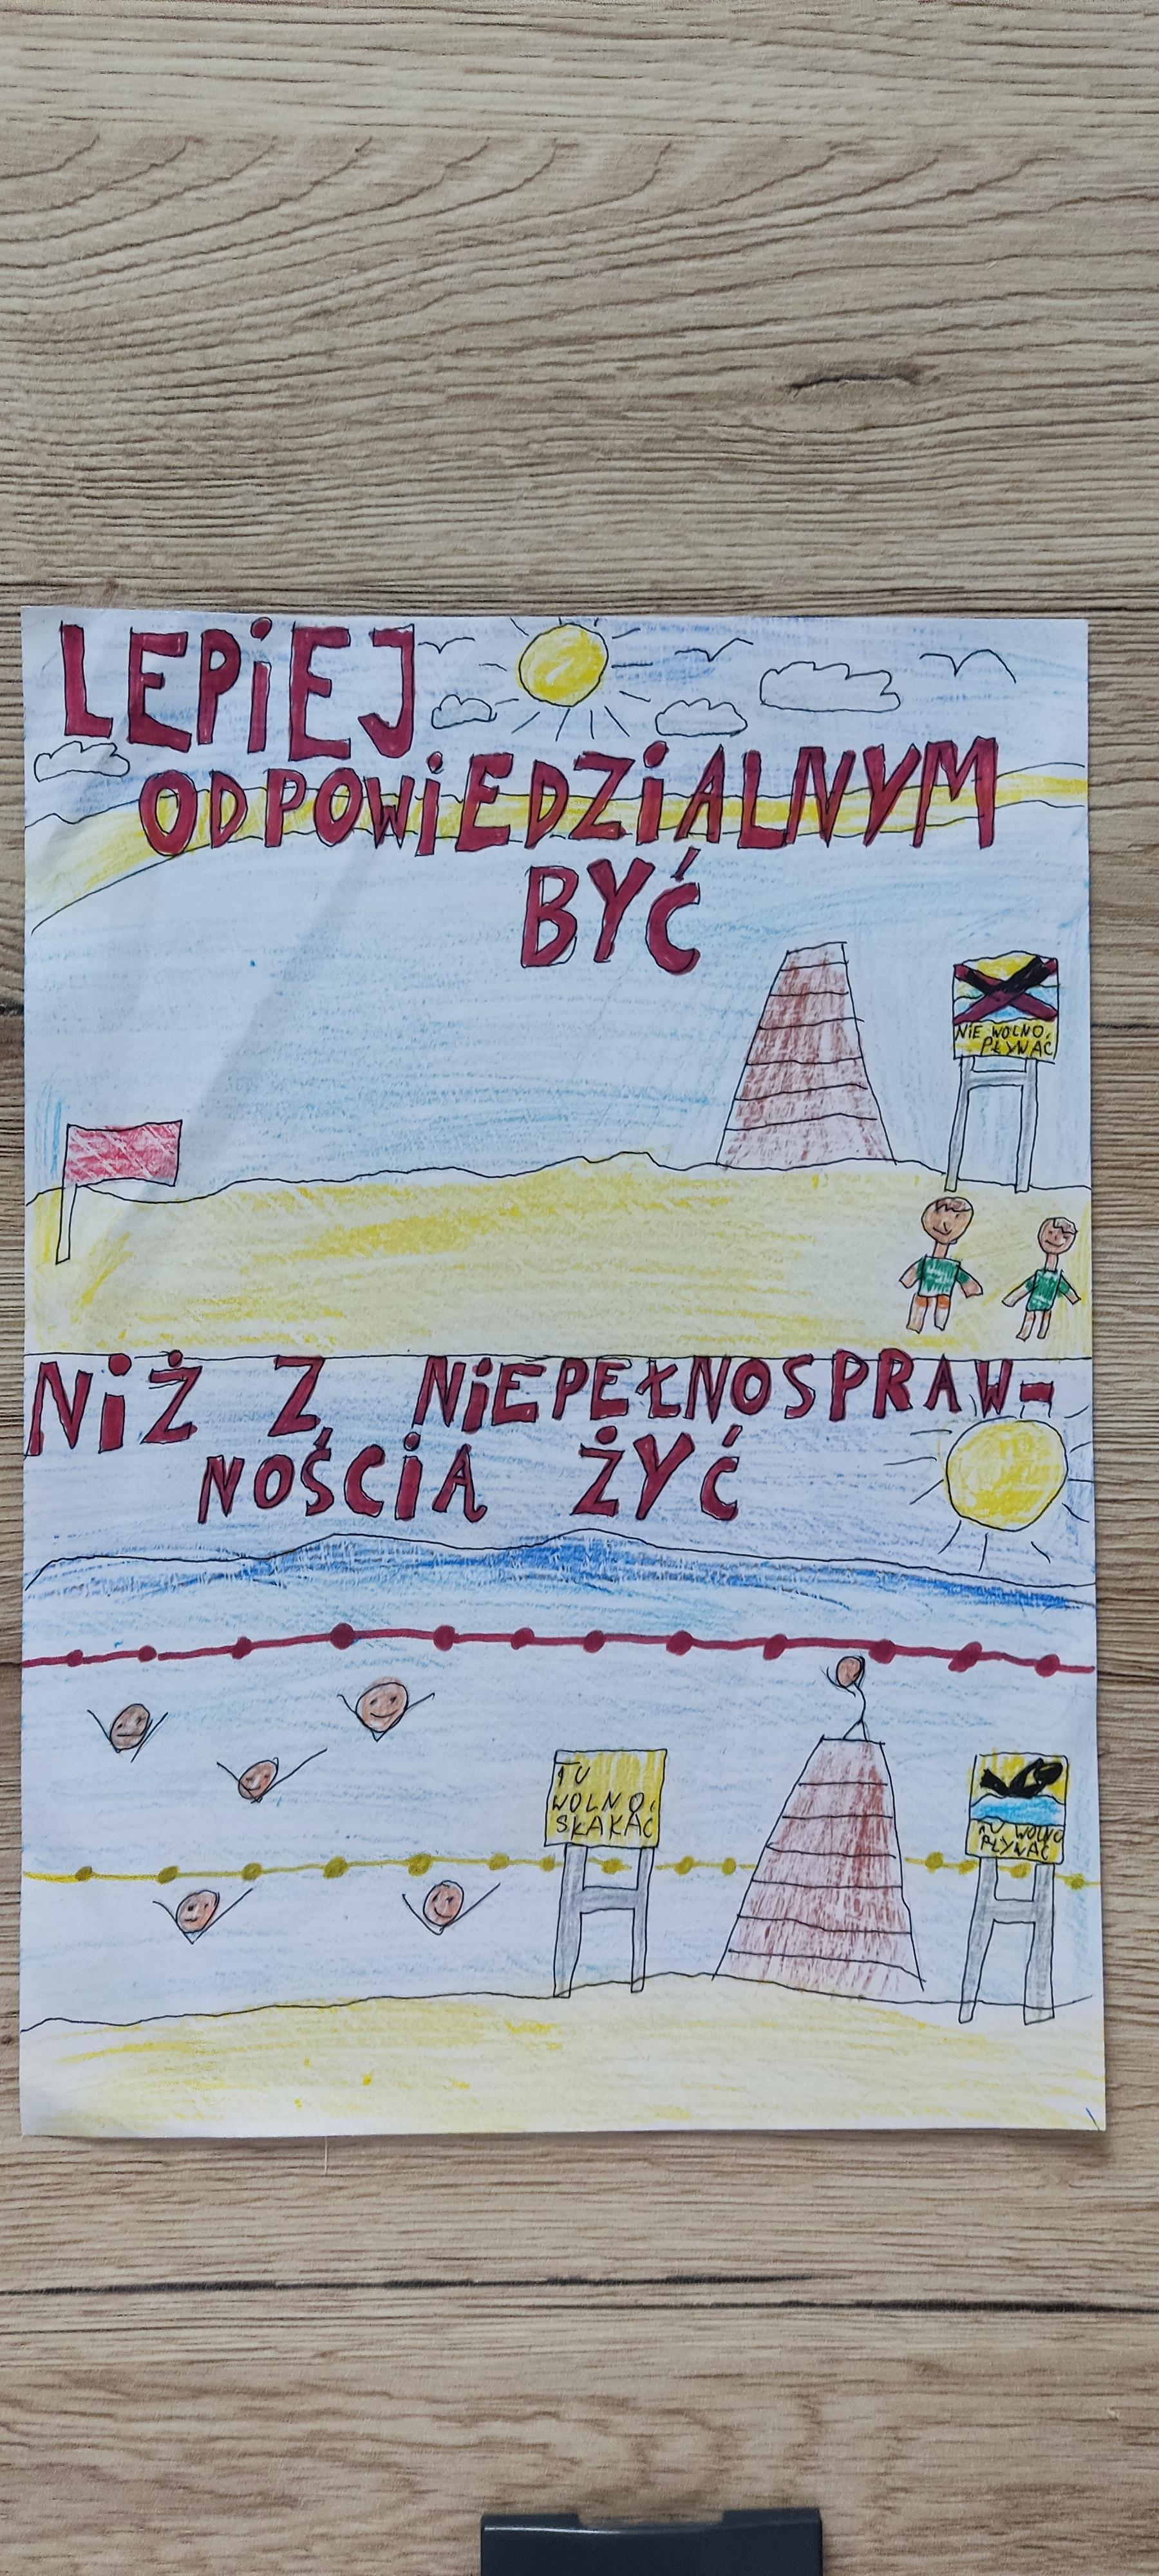 LEPiEJ
ODPOWiEDZiALNYM
BYĆ
NiE WOLNO
PŁYWAĆ
NiŻ Z NiEPEŁNOSPRAW-
NOŚCiĄ ŻYĆ
TU
WOLNO
SKAKAĆ
TU WOLNO
PŁYWAĆ